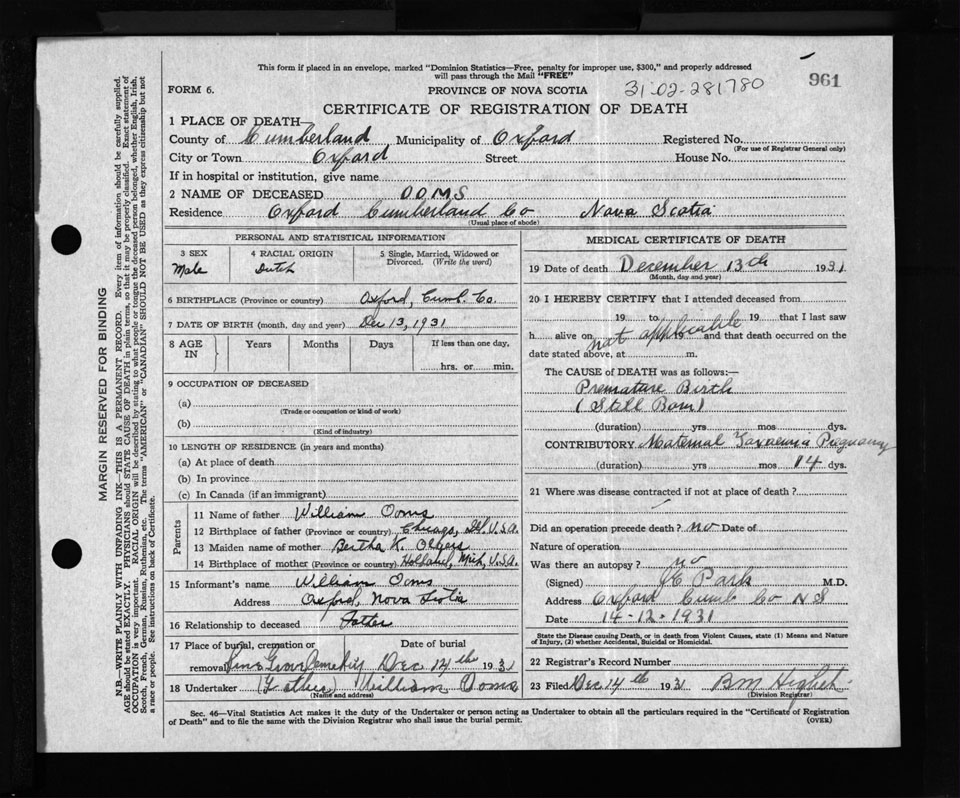 This form if placed in an envelope, marked "Dominion Statistics—Free, penalty for improper use, $300," and properly addressed
will pass through the Mail "FREE"
961
FORM 6.
PROVINCE OF NOVA SCOTIA
31-02-281780
CERTIFICATE OF REGISTRATION OF DEATH
1 PLACE OF DEATH—
County of Cumberland Municipality of Oxford Registered No.
(For use of Registrar General only)
City or Town Oxford Street House No.
If in hospital or institution, give name
2 NAME OF DECEASED OOMS
Residence Oxford Cumberland Co Nova Scotia
(Usual place of abode)
PERSONAL AND STATISTICAL INFORMATION
3 SEX
Male
4 RACIAL ORIGIN
Dutch
5 Single, Married, Widowed or
Divorced. (Write the word)
6 BIRTHPLACE (Province or country) Oxford, Cumb. Co.
7 DATE OF BIRTH (month, day and year) Dec 13, 1931
8 AGE
IN
Years
Months
Days
If less than one day,
hrs. or min.
9 OCCUPATION OF DECEASED
(a)
(Trade or occupation or kind of work)
(b)
(Kind of industry)
10 LENGTH OF RESIDENCE (in years and months)
(a) At place of death
(b) In province
(c) In Canada (if an immigrant)
Parents
11 Name of father William Ooms
12 Birthplace of father (Province or country) Chicago, Ill. U.S.A.
13 Maiden name of mother Bertha K.
14 Birthplace of mother (Province or country) Holland, Mich, U.S.A.
15 Informant's name William Ooms
Address Oxford, Nova Scotia
16 Relationship to deceased Father
17 Place of burial, cremation or
removal Pine Grove Cemetery
Date of burial
Dec 14th 1931
18 Undertaker (Father) William Ooms
(Name and address)
MEDICAL CERTIFICATE OF DEATH
19 Date of death December 13th 1931
(Month, day and year)
20 I HEREBY CERTIFY that I attended deceased from
19 to 19 that I last saw
h alive on not applicable 19 and that death occurred on the
date stated above, at m.
The CAUSE of DEATH was as follows:—
Premature Birth
(Still Born)
(duration) yrs mos dys.
CONTRIBUTORY Maternal Toxaemia Pregnancy
(duration) yrs mos 14 dys.
21 Where was disease contracted if not at place of death?
Did an operation precede death? no Date of
Nature of operation
Was there an autopsy? no
(Signed) Park M.D.
Address Oxford Cumb Co N S
Date 14-12-1931
State the Disease causing Death, or in death from Violent Causes, state (1) Means and Nature
of Injury, (2) whether Accidental, Suicidal or Homicidal.
22 Registrar's Record Number
23 Filed Dec 14th 1931 B M
(Division Registrar)
Sec. 46—Vital Statistics Act makes it the duty of the Undertaker or person acting as Undertaker to obtain all the particulars required in the "Certificate of Registration
of Death" and to file the same with the Division Registrar who shall issue the burial permit.
(OVER)
MARGIN RESERVED FOR BINDING
N.B.—WRITE PLAINLY WITH UNFADING INK—THIS IS A PERMANENT RECORD. Every item of information should be carefully supplied.
AGE should be stated EXACTLY. PHYSICIANS should STATE CAUSE OF DEATH in plain terms, so that it may be properly classified. Exact statement of
OCCUPATION is very important. RACIAL ORIGIN will be described by stating to what people or tongue the deceased person belonged, whether English, Irish,
Scotch, French, German, Russian, Ruthenian, etc. The terms "AMERICAN" or "CANADIAN" SHOULD NOT BE USED as they express citizenship but not
a race or people. See instructions on back of Certificate.